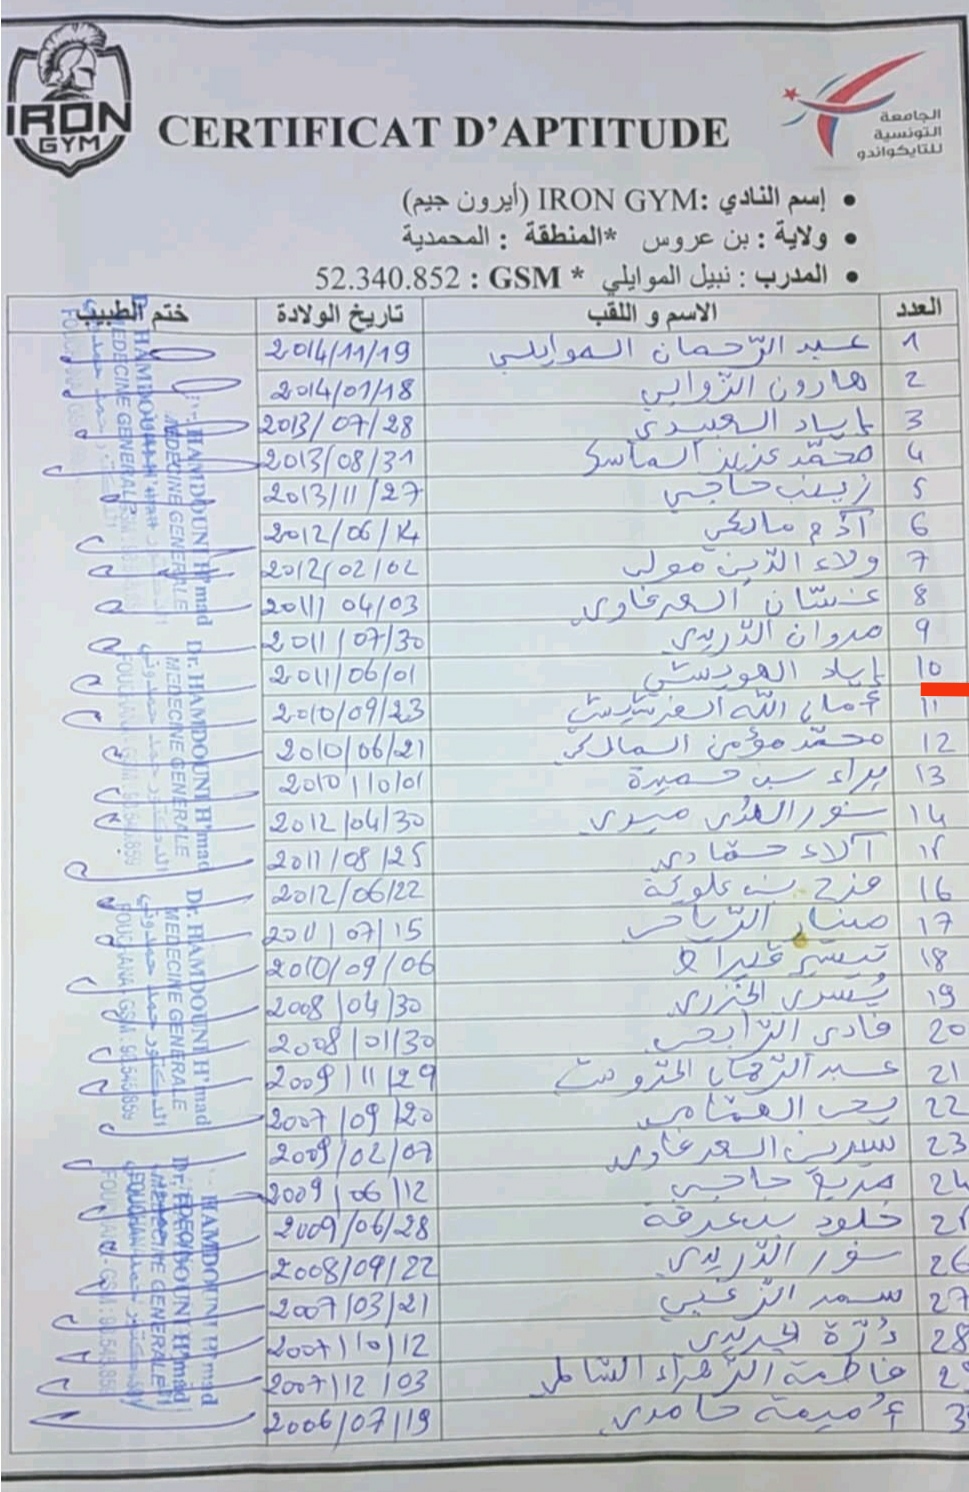 IRON
GYM
CERTIFICAT D'APTITUDE
الجامعة
التونسية
للتايكواندو
• إسم النادي :IRON GYM (أيرون جيم)
• ولاية : بن عروس *المنطقة : المحمدية
• المدرب : نبيل الموايلي * GSM : 52.340.852
العدد الاسم و اللقب تاريخ الولادة ختم الطبيب
1 عبد الرّحمان الموايلي 2014/11/19
2 هارون الزوابي 2014/01/18
3 إياد العبيدي 2013/07/28
4 محمّد عزيز الماسي 2013/08/31
5 زينب حاجي 2013/11/27
6 آدم مالكي 2012/06/14
7 ولاء الدّين مولي 2012/02/02
8 غسّان السعرغاوي 2011/04/03
9 مروان الدّريدي 2011/07/30
10 إياد الهويشي 2011/06/01
11 أمان الله الفرشيشي 2010/09/23
12 محمّد مؤمن المالكي 2010/06/21
13 براء بن حميدة 2010/10/01
14 نور الهدى ميدي 2012/04/30
15 آلاء حمّادي 2011/08/25
16 فرح بن علوكة 2012/06/22
17 منار الرّياحي 2011/07/15
18 تيسير قيراط 2010/09/06
19 يُسرى الخزري 2008/04/30
20 فادي الرّابحي 2008/01/30
21 عبد الرّحمان 2009/11/29
22 يحي العثامني 2007/09/20
23 سيرين السعرغاوي 2009/02/07
24 مريم حاجي 2009/06/12
25 خلود بن عرفة 2009/06/28
26 نور الدّريدي 2008/09/22
27 سمر الزغبي 2007/03/21
28 درّة الجريدي 2007/10/12
29 فاطمة الزّهراء الشاطر 2007/12/03
3 أميمة حامدي 2006/07/19
Dr. HAMDOUNI H'mad
MEDECINE GENERALE
الدكتور حمد حمدوني
FOUCHANA GSM. 98.545.859
Dr. HAMDOUNI H'mad
MEDECINE GENERALE
الدكتور حمد حمدوني
FOUCHANA GSM. 98.545.859
Dr. HAMDOUNI H'mad
MEDECINE GENERALE
الدكتور حمد حمدوني
FOUCHANA GSM. 98.545.859
Dr. HAMDOUNI H'mad
MEDECINE GENERALE